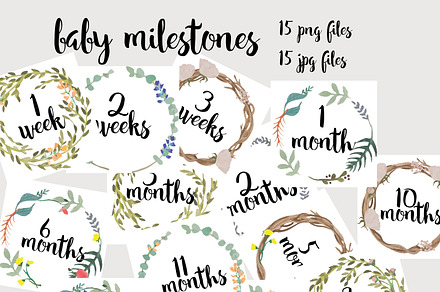 baby milestones
15 png files
15 jpg files
1
week
2
weeks
3
weeks
1
month
months
2
months
10
months
6
months
11
months
5